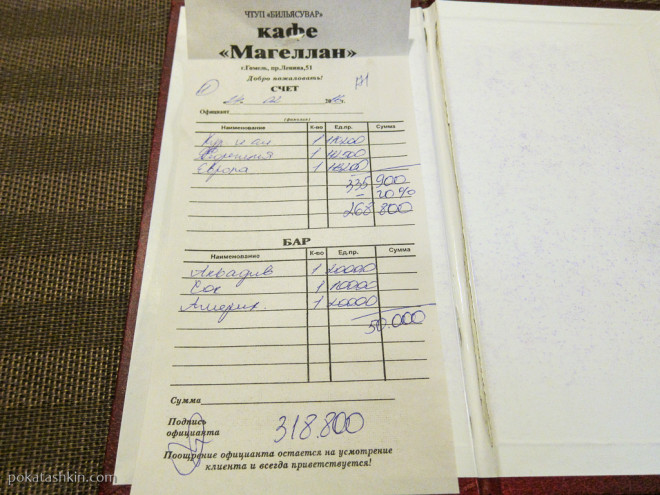 ЧТУП «БИЛЬЯСУВАР»
кафе
«Магеллан»
г.Гомель, пр.Ленина,51
Добро пожаловать!
СЧЕТ
02
Официант
Наименование К-во Ед.пр. Сумма
1
1
Европа 1
335 900
- 20%
268 800
БАР
Наименование К-во Ед.пр. Сумма
Аквадив 1 20000
Сок 1 10000
Америк. 1 20000
50.000
Сумма
Подпись
официанта
318.800
Поощрение официанта остается на усмотрение
клиента и всегда приветствуется!
pokatashkin.com